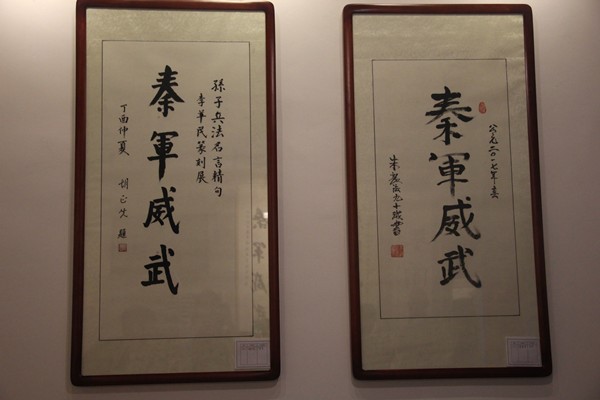 孫子兵法名言精句
李華民篆刻展
秦軍威武
丁酉仲夏 胡正安 題
公元二〇一七年春
秦軍威武
九十歲書